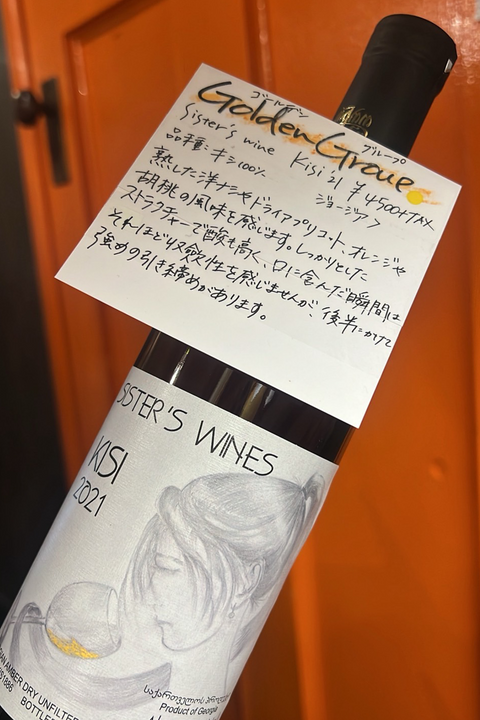 ゴールデン グループ
Golden Groue
Sister's wine Kisi '21 ¥4500+TAX
品種:キシ100% ジョージア
熟した洋ナシやドライアプリコット、オレンジや
胡桃の風味を感じます。しっかりとした
ストラクチャーで酸も高く、口に含んだ瞬間は
それほど収斂性を感じませんが、後半にかけて
強めの引き締めがあります。
SISTER'S WINES
KISI
2021
AMBER DRY UNFILTERED
BOTTLE
Product of Georgia